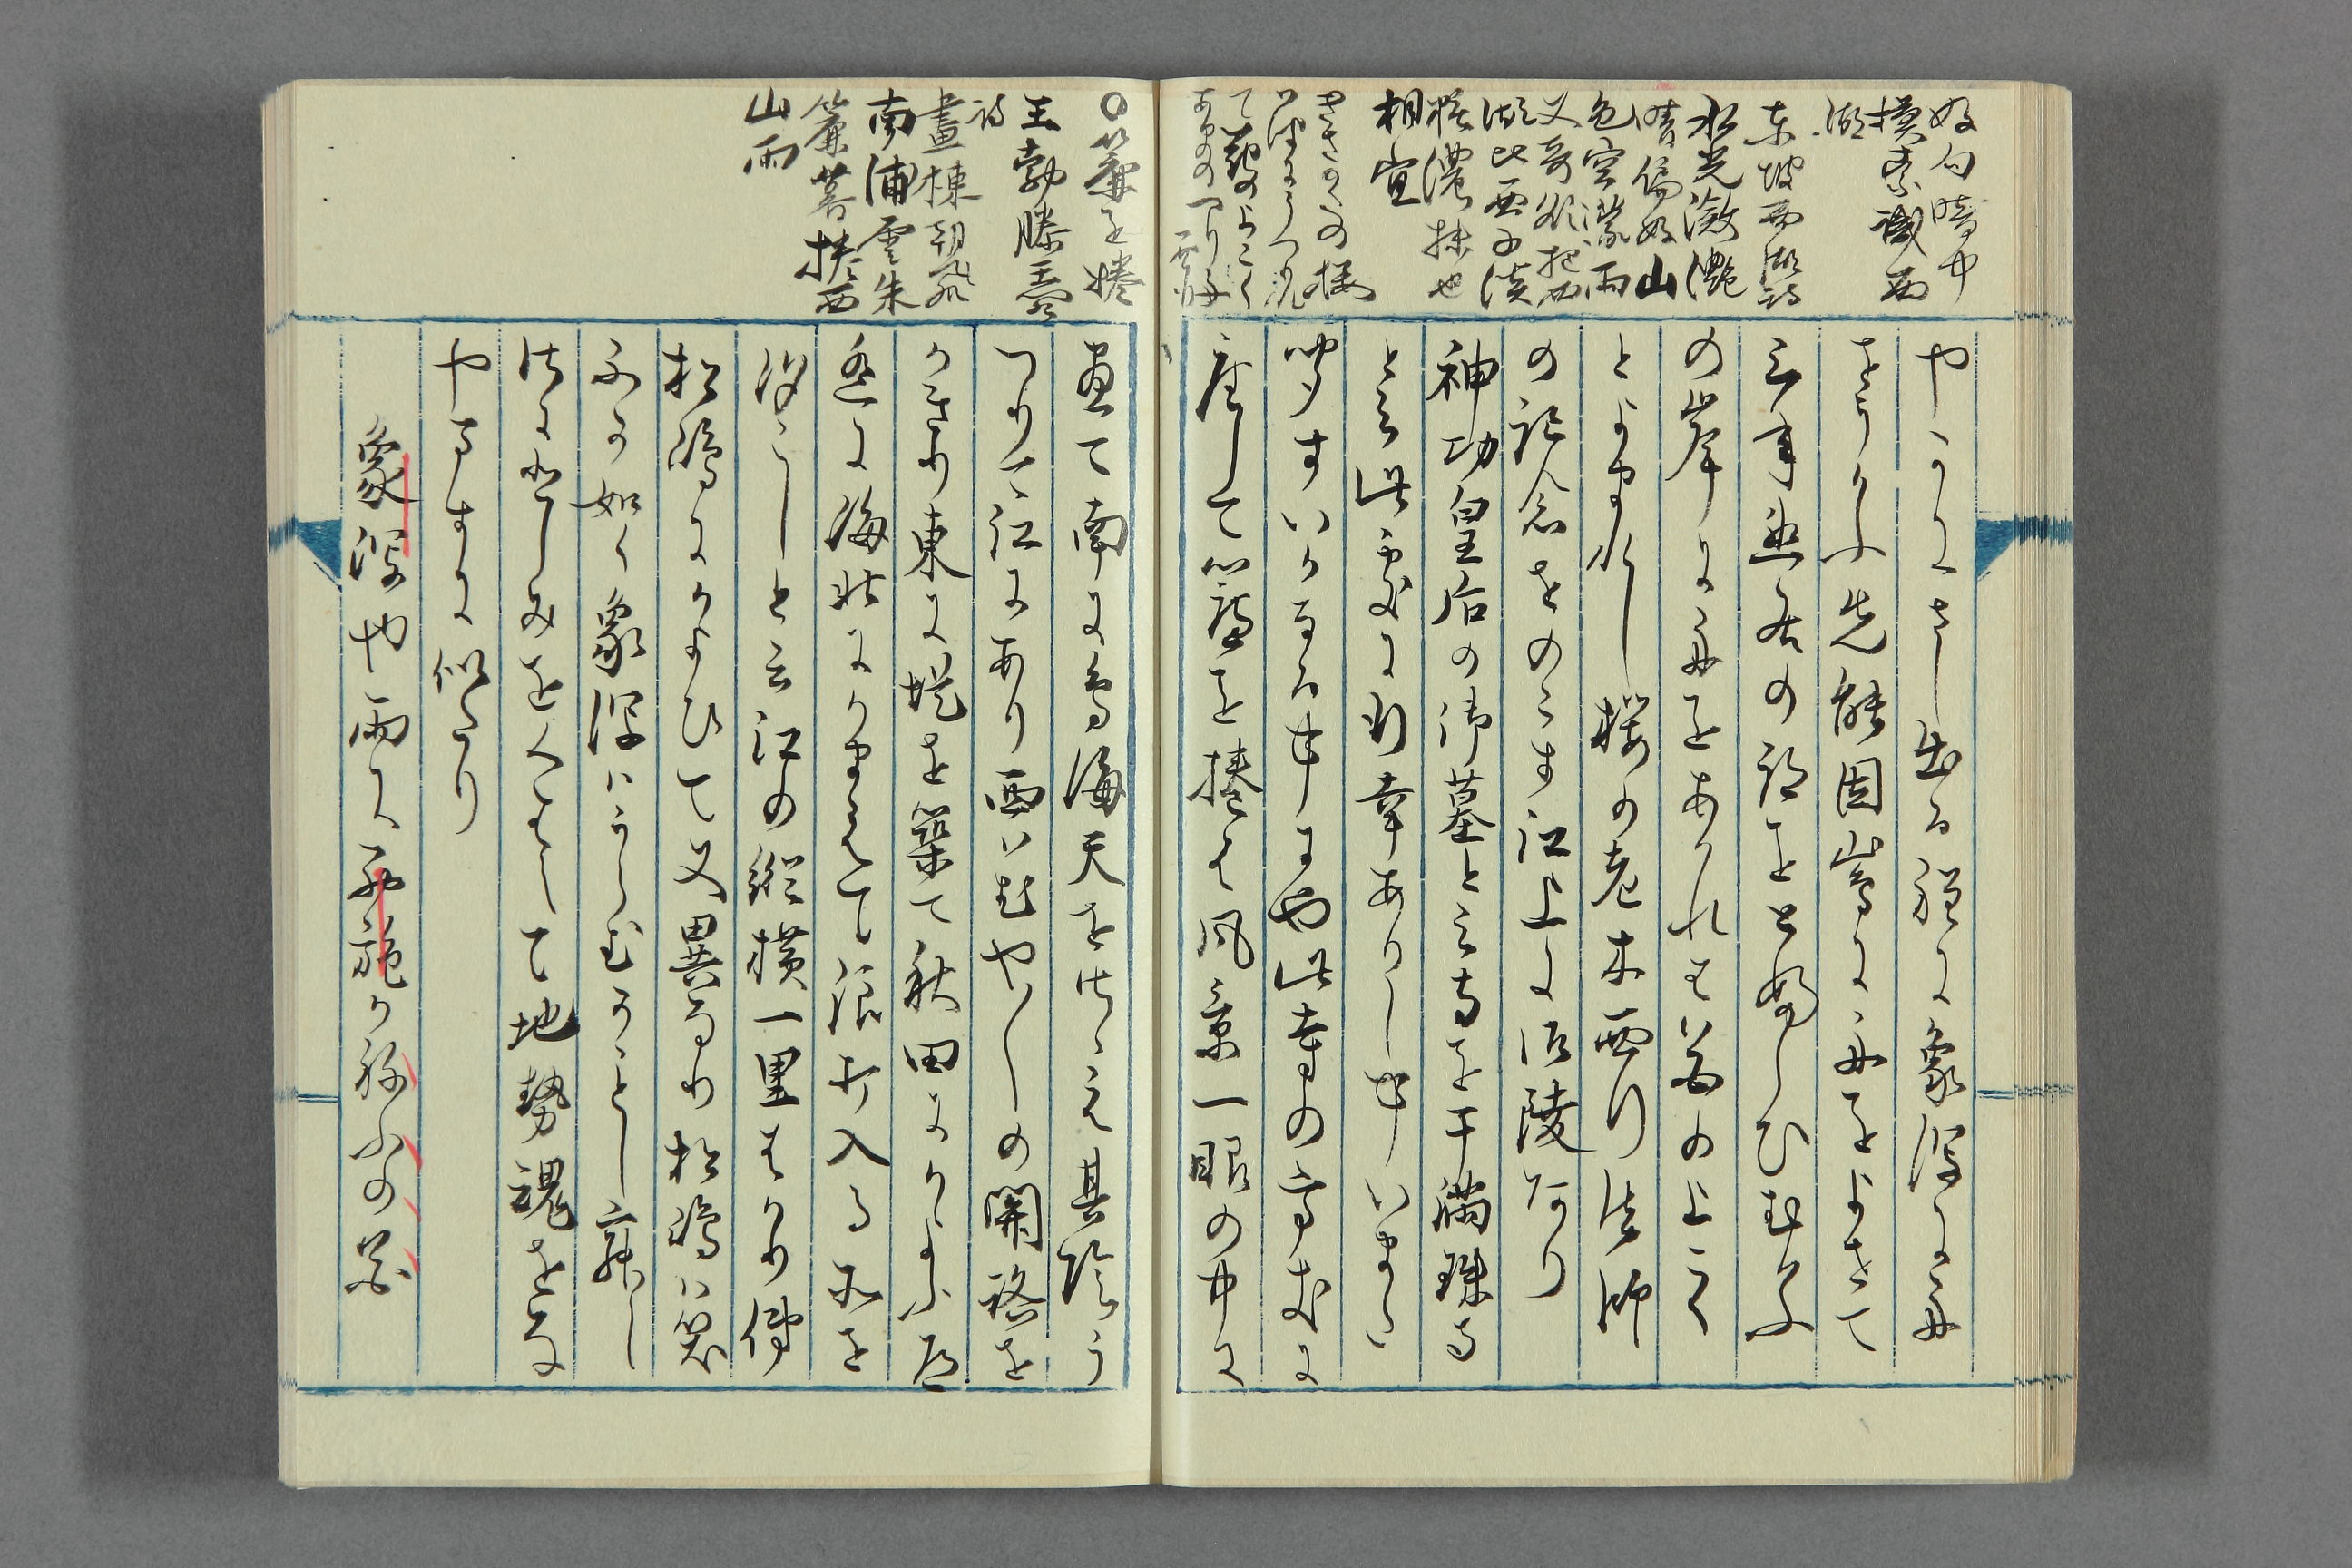 好句暗中
摸索識西
湖
東坡西湖詩
水光瀲灔
晴偏好山
色空濛雨
又奇欲把西
湖比西子淡
粧濃抹也
相宜
きさかたの桜
は浪にうつれ
て花の上こく
あまのつり舟
やかにさし出る程に象潟に舟
をうかふ先能因嶋に舟をよせて
三年幽居の跡をとふらひむかふ
の岸に舟をあかれは花の上こく
とよまれし桜の老木西行法師
の記念をのこす江上に御陵あり
神功皇后の御墓と云寺を干満珠寺
と云此處に行幸ありし事いまた
聞すいかなる事にや此寺の方丈に
座して簾を捲は風景一眼の中に
○簾を捲
王勃滕王閣
詩
畫棟朝飛
南浦雲朱
簾暮捲西
山雨
盡て南に鳥海天をさゝえ其陰う
つりて江にあり西はむや〳〵の関路を
かきり東に堤を築て秋田にかよふ道
遥に海北にかまえて浪打入る所を
汐こしと云江の縦横一里はかり俤
松嶋にかよひて又異なり松嶋は笑
ふか如く象潟はうらむかことし寂し
さに悲しみをくはえて地勢魂をな
やますに似たり
象潟や雨に西施かねふの花